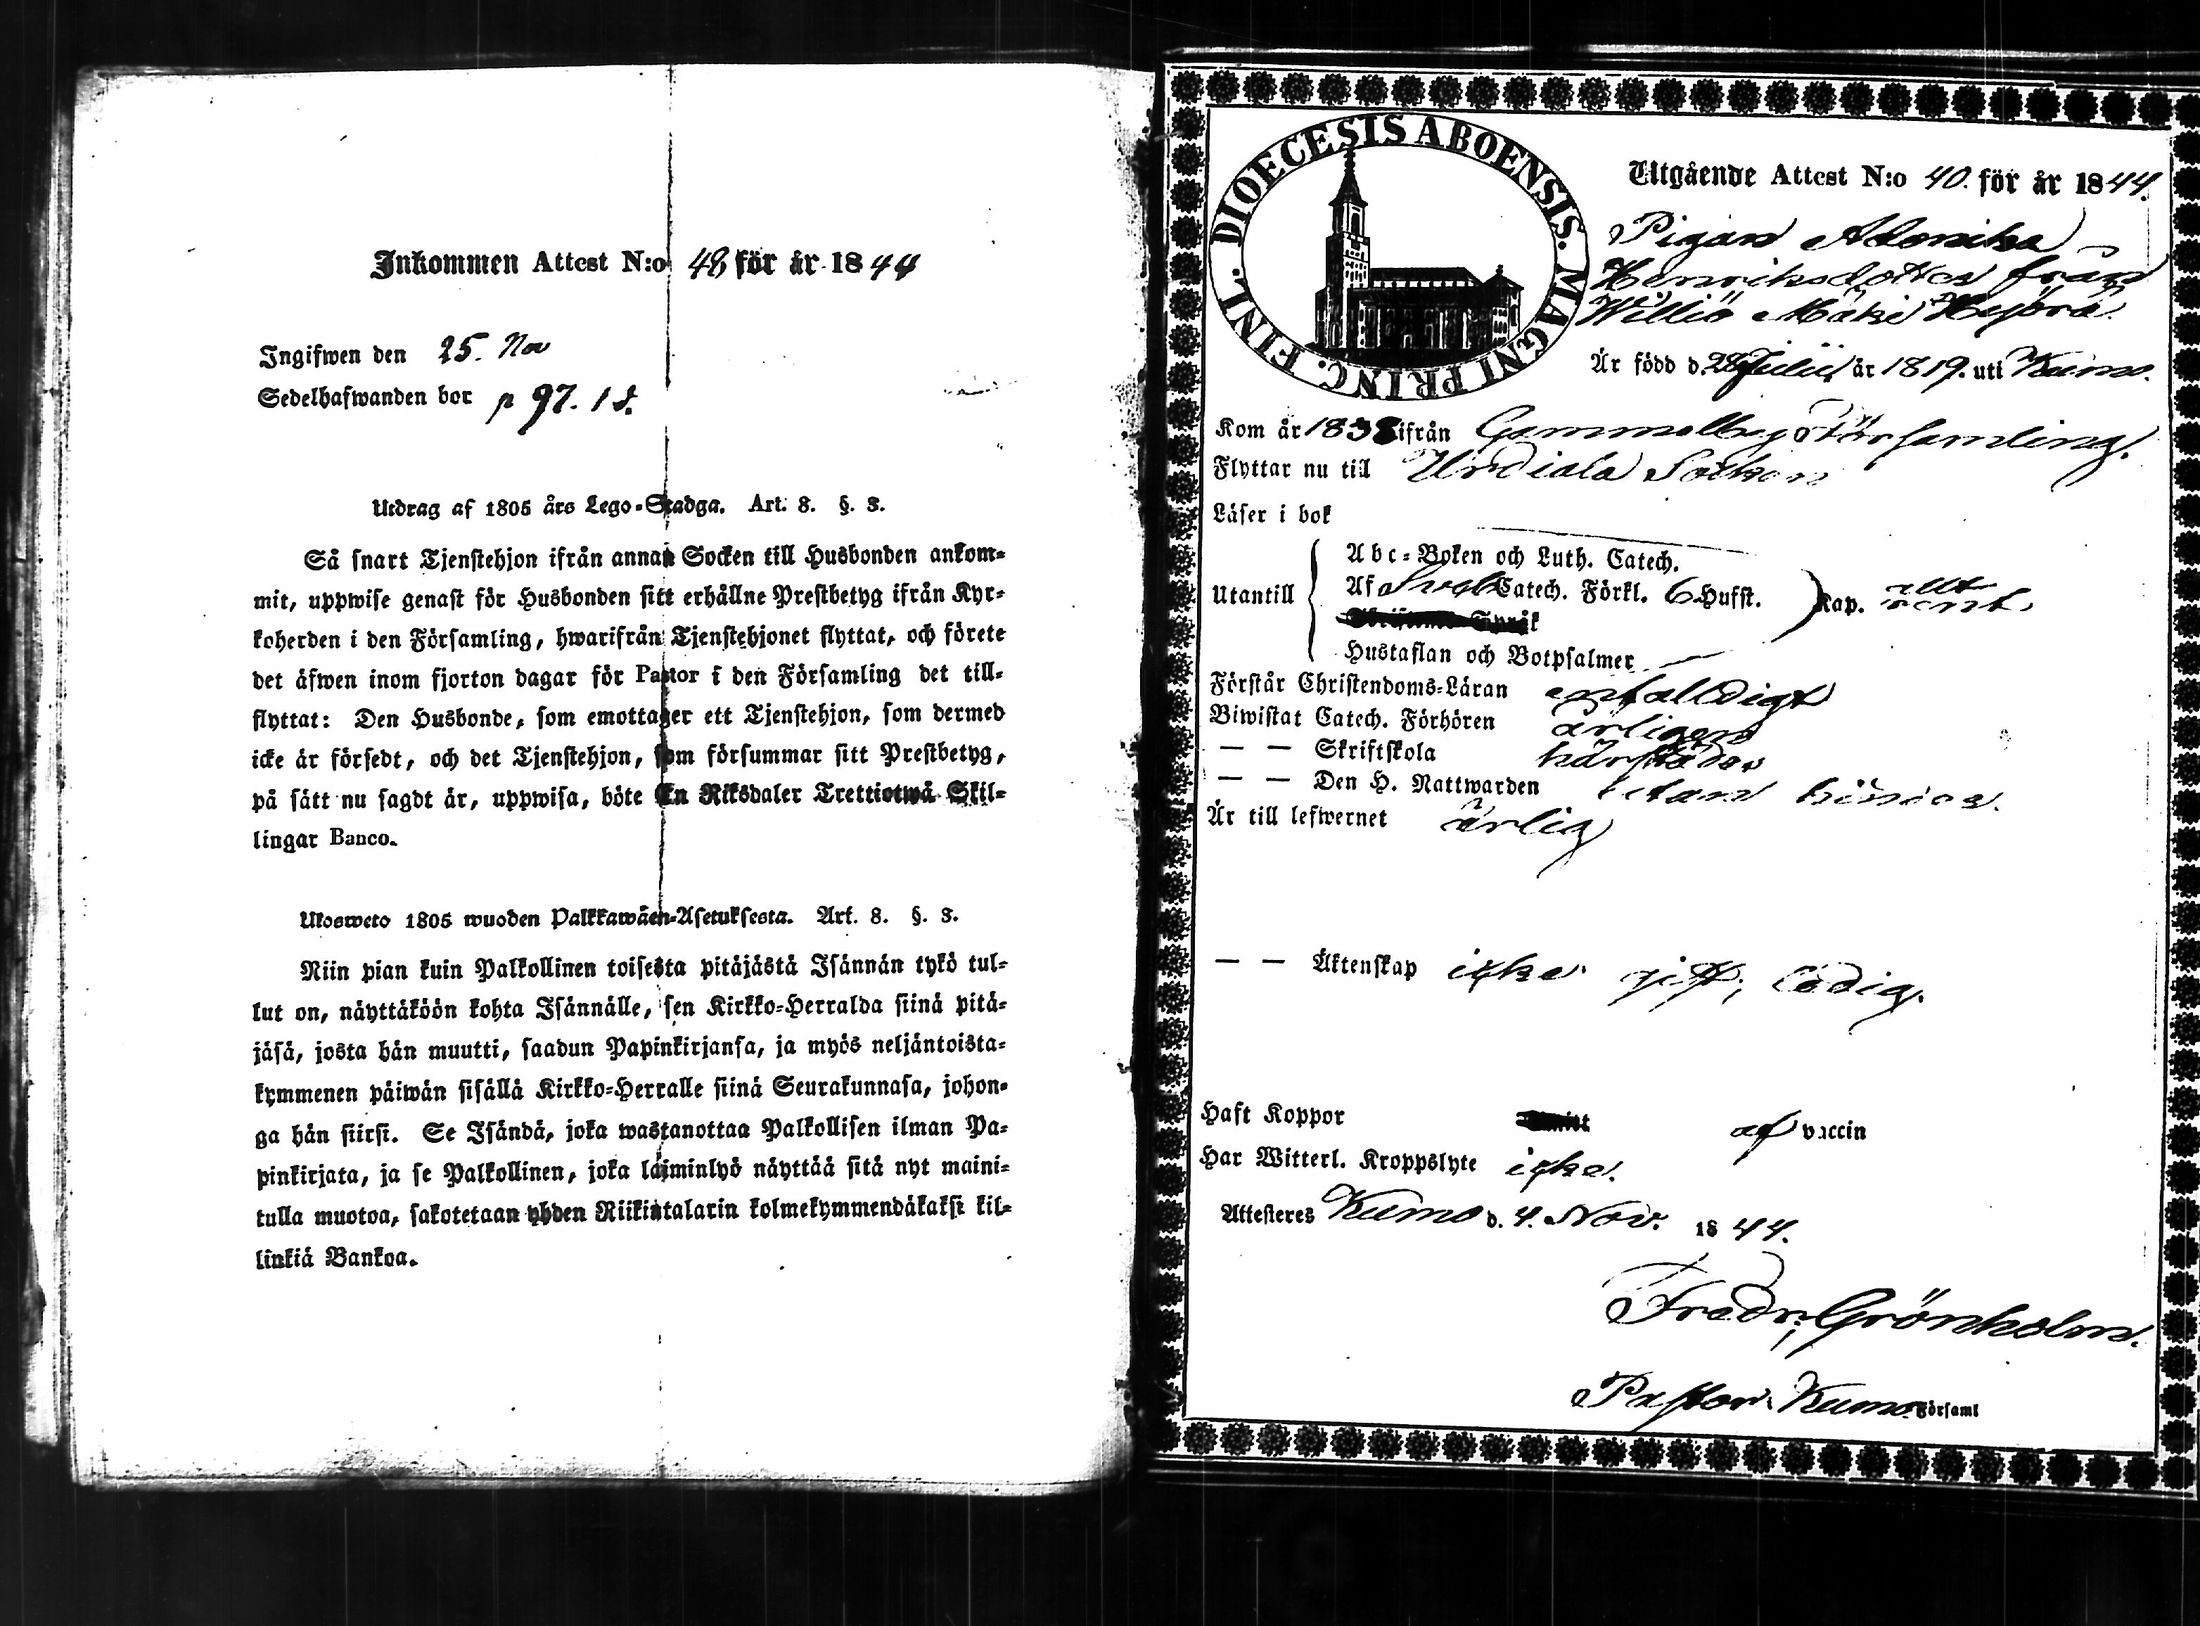 Inkommen Attest N:o 48 för år 1844
Ingifwen den 25. Nov
Sedelhafwanden bor p 97. 18.
Utdrag af 1805 års Lego-Stadga. Art. 8. §. 3.
Så snart Tjenstehjon ifrån annan Socken till Husbonden ankom-
mit, uppwise genast för Husbonden sitt erhållne Prestbetyg ifrån Kyr-
koherden i den Församling, hwarifrån Tjenstehjonet flyttat, och förete
det äfwen inom fjorton dagar för Pastor i den Församling det till-
flyttat: Den Husbonde, som emottager ett Tjenstehjon, som dermed
icke är försedt, och det Tjenstehjon, som försummar sitt Prestbetyg,
på sätt nu sagdt är, uppwisa, böte En Riksdaler Trettiotwå Skil-
lingar Banco.
Ulosweto 1805 wuoden Palkkawäen-Asetuksesta. Art. 8. §. 3.
Niin pian kuin Palkollinen toisesta pitäjästä Isännän tykö tul-
lut on, näyttäköön kohta Isännälle, sen Kirkko-Herralda siinä pitä-
jäsä, josta hän muutti, saadun Papinkirjansa, ja myös neljäntoista-
kymmenen päiwän sisällä Kirkko-Herralle siinä Seurakunnasa, johon-
ga hän siirsi. Se Isändä, joka wastanottaa Palkollisen ilman Pa-
pinkirjata, ja se Palkollinen, joka laiminlyö näyttää sitä nyt maini-
tulla muotoa, sakotetaan yhden Riikintalarin kolmekymmendäkaksi kil-
linkiä Bankoa.
DIOECESIS ABOENSIS. MAGNI PRINC. FINL.
Utgående Attest N:o 40. för år 1844.
Pigan
Henriksdotter från
Williö Mäki Hyörä
Är född d. 28 Julii år 1819. uti Kumo.
Kom år 1838 ifrån Gammelby Församling.
Flyttar nu till Urdiala Socken
Läser i bok
Utantill
Abc-Boken och Luth. Catech.
Af Sveb. Catech. Förkl. 6 Hufst. Kap. allt
Språk
Hustaflan och Botpsalmer
Förstår Christendoms-Läran enfalldigt
Biwistat Catech. Förhören årligen
— — Skriftskola härstädes
— — Den H. Nattwarden utan hinder.
Är till lefwernet ärlig
— — Äktenskap icke gift, ledig.
Haft Koppor af vaccin
Har Witterl. Kroppslyte icke.
Attesteres Kumo d. 4. Nov. 1844.
Fredr. Grönholm.
Pastor i Kumo Församl